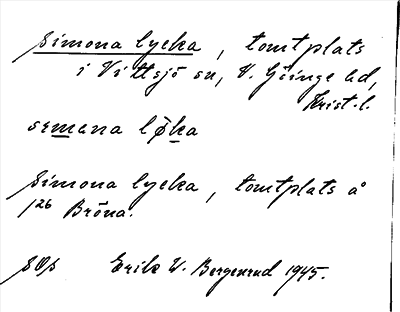 Simona lycka, tomtplats
i Vittsjö sn, V. Göinge hd,
Krist. l.
semena løka
Simona lycka, tomtplats å
1²⁶ Bröna.
SOp Erik W. Bergenrud 1945.